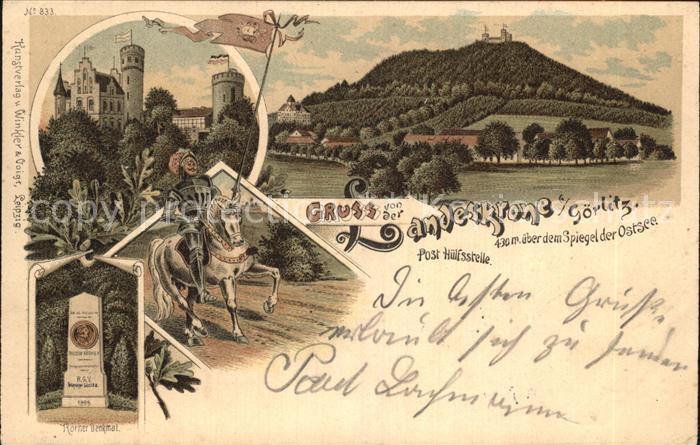 No 833.
Kunstverlag v Winkler & Voigt, Leipzig.
GRUSS von der Landeskrone b/Görlitz.
430 m. über dem Spiegel der Ostsee.
Post Hülfsstelle.
Die besten Grüße
erlaubt sich zu senden
Paul Lachmann
R.G.V.
Körner Denkmal.
copyright